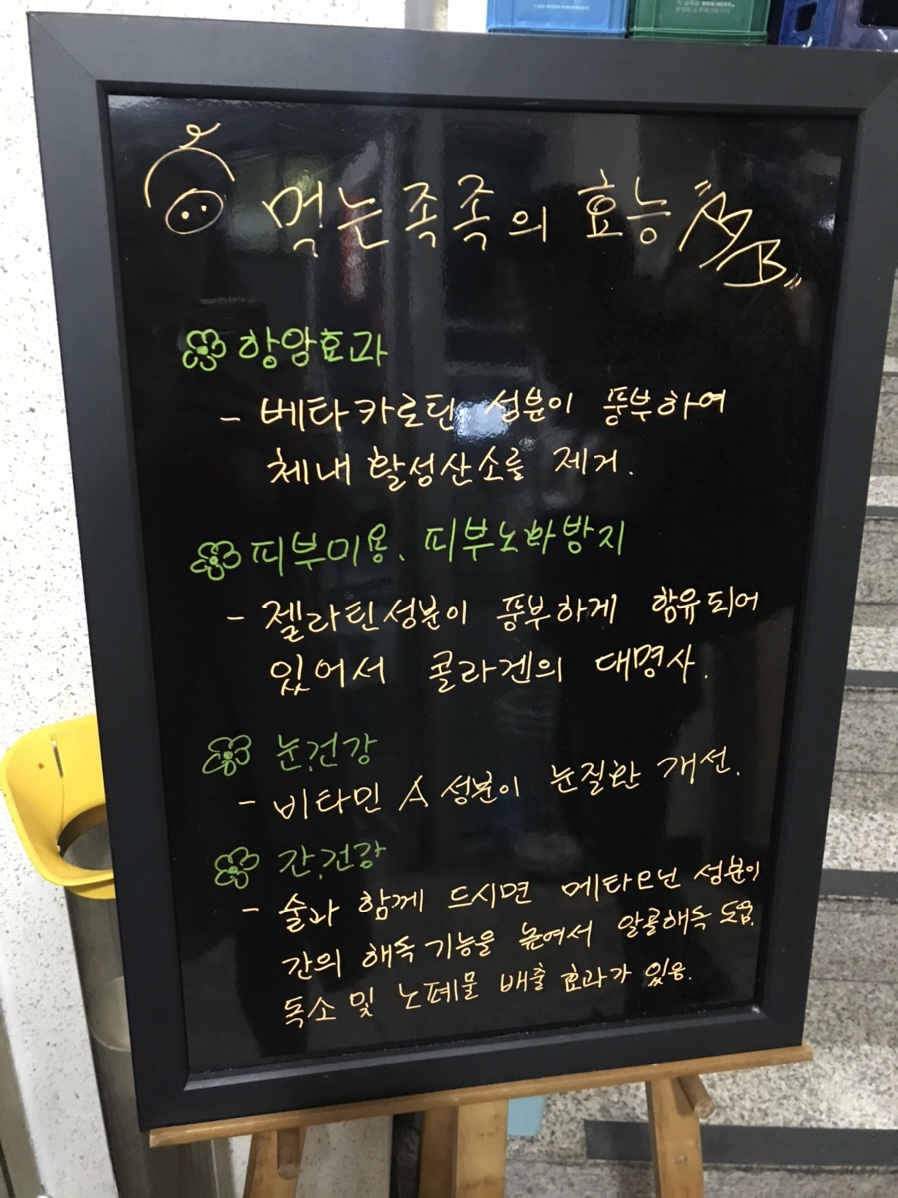 먹는족족의 효능
항암효과
- 베타카로틴 성분이 풍부하여
체내 활성산소를 제거.
피부미용, 피부노화방지
- 젤라틴성분이 풍부하게 함유되어
있어서 콜라겐의 대명사.
눈건강
- 비타민 A 성분이 눈질환 개선.
간건강
- 술과 함께 드시면 메타오닌 성분이
간의 해독기능을 높여서 알콜해독 도움.
독소 및 노폐물 배출 효과가 있음.